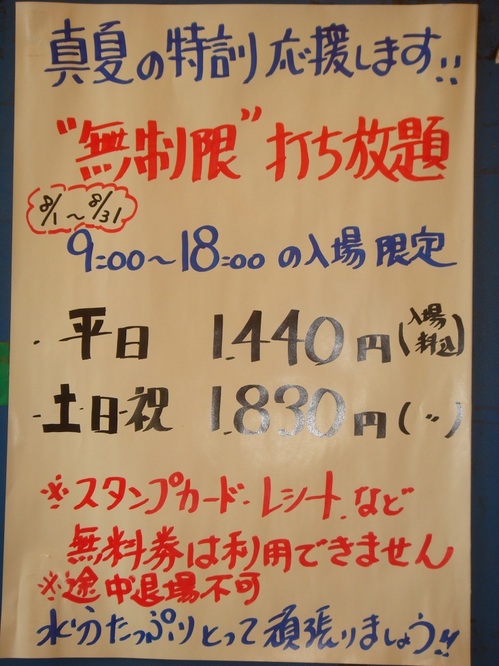 真夏の特訓応援します!!
"無制限"打ち放題
8/1〜8/31
9:00〜18:00の入場限定
・平日 1,440円(入場料込)
・土・日・祝 1,830円(〃)
※スタンプカード・レシートなど
無料券は利用できません
※途中退場不可
水分たっぷりとって頑張りましょう!!